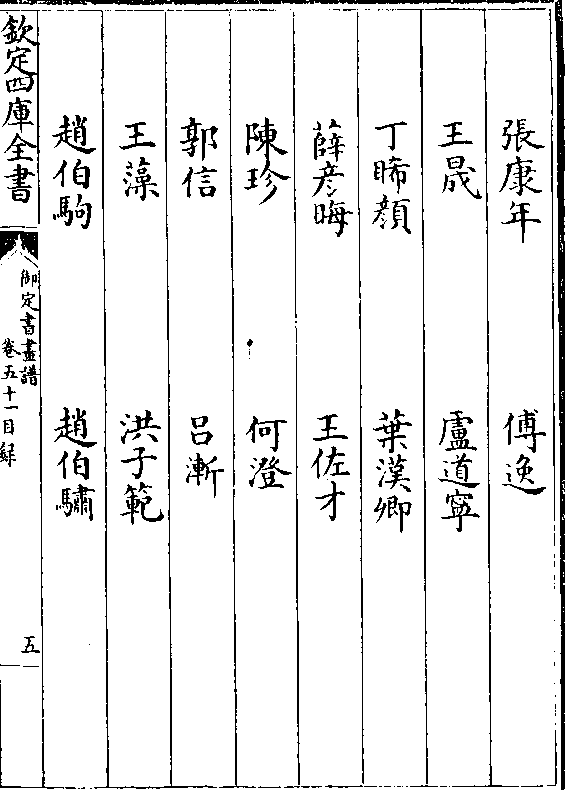 張康年 傅逸
王晟 盧道寜
丁晞顔 葉漢卿
薛彦晦 王佐才
陳珍 何澄
郭信 吕漸
王藻 洪子範
趙伯駒 趙伯驌
欽定四庫全書
御定書畫譜
卷五十一目録
五